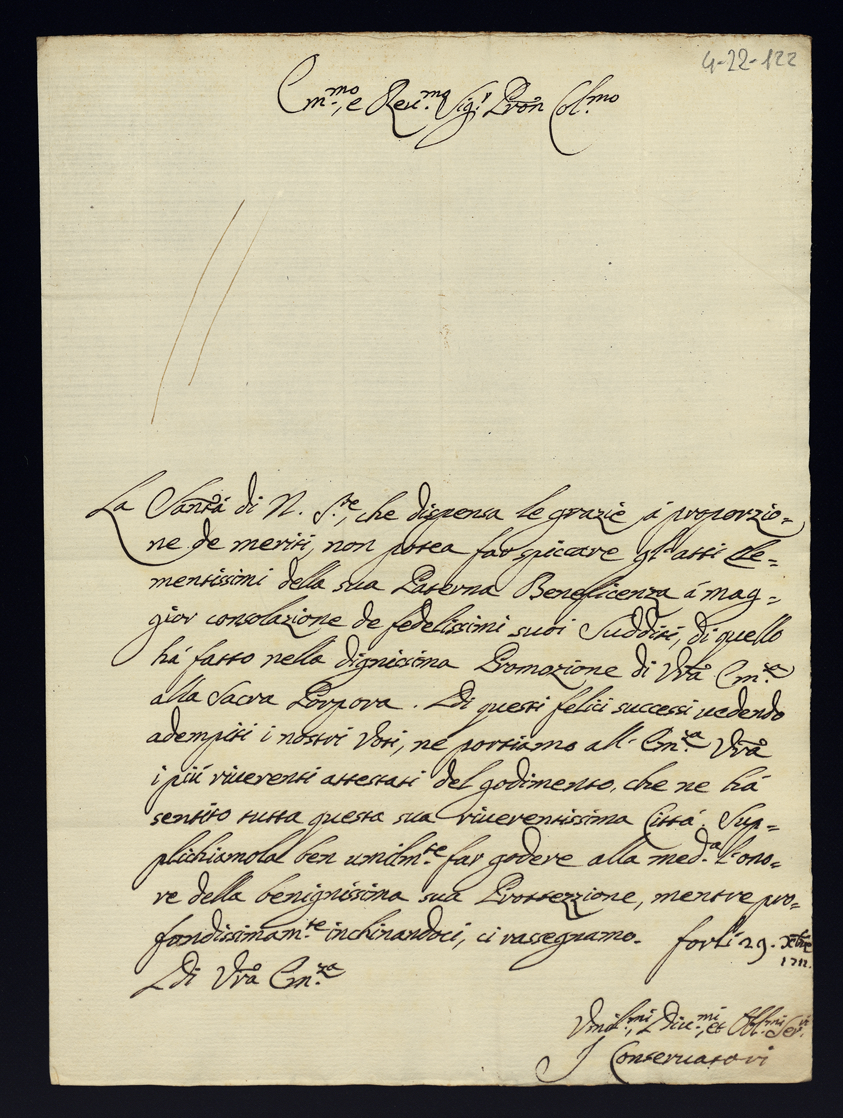 4-22-122
Em.mo, e Reu.mo Sig.r Pron Col.mo
La Santà di N. S.re, che dispensa le grazie à proporzio=
ne de meriti, non potea far spiccare gl'atti Cle=
mentissimi della sua Paterna Beneficenza à mag=
gior consolazione de fedelissimi suoi Sudditi, di quello
hà fatto nella dignissima Promozione di Vrà Em.za
alla Sacra Porpora. Di questi felici successi uedendo
adempiti i nostri Voti, ne portiamo all' Em.za Vrà
i più riuerenti attestati del godimento, che ne hà
sentito tutta questa sua riuerentissima Città. Sup=
plichiamola ben umilm.te far godere alla med.a l'ono=
re della benignissima sua Protezzione, mentre pro=
fondissimam.te inchinandoci, ci rassegnamo. forlì 29. Xbre
1712.
Di Vrà Em.za
Vmil.mi, Diu.mi, et Obl.mi Ser.ri
J Conseruatori